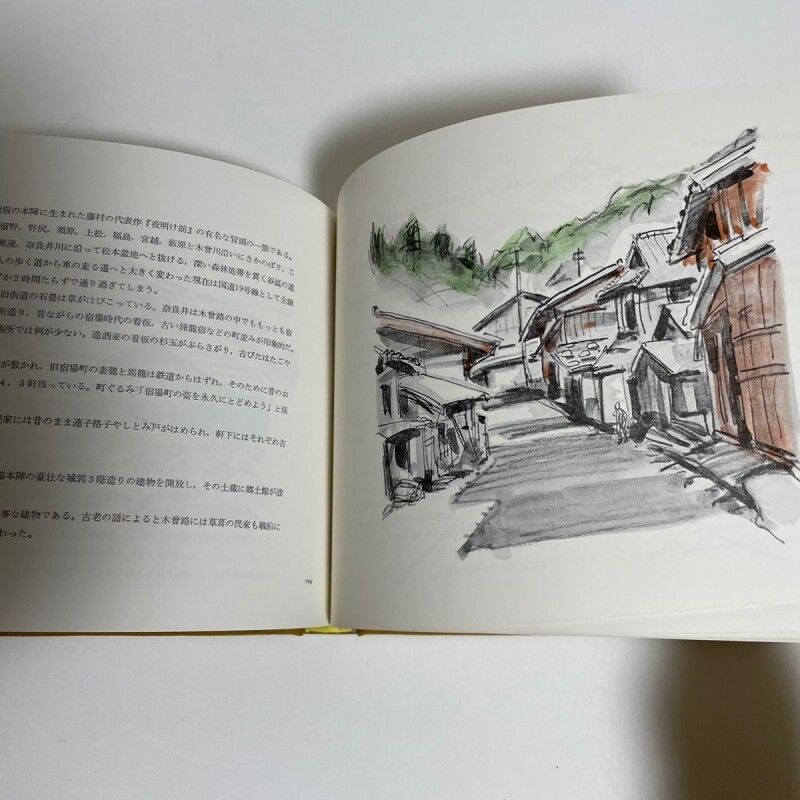 宿の本陣に生まれた藤村の代表作『夜明け前』の有名な冒頭の一節である。
留野，野尻，須原，上松，福島，宮越，藪原と木曾川沿いにさかのぼり，こ
源流，奈良井川に沿って松本盆地へと抜ける，深い森林地帯を貫く谷底の道
人の歩く道から車の走る道へと大きく変わった現在は国道19号線として全線
か2時間たらずで通り過ぎてしまう。
旧街道の石畳は草がはびこっている。奈良井は木曾路の中でももっとも宿
桁造り，昔ながらの宿場時代の看板，古い旅籠宿などの町並みが印象的だ。
地所では例が少ない。造酒家の看板の杉玉がぶらさがり，古びたはたごや
が敷かれ，旧宿場町の妻籠と馬籠は鉄道からはずれ，そのために昔のお
4，5軒残っている。町ぐるみ「宿場町の姿を永久にとどめよう」と保
民家には昔のまま連子格子やしとみ戸がはめられ。軒下にはそれぞれ古
脇本陣の豪壮な城郭3階造りの建物を開放し，その土蔵に郷土館が設
事な建物である。古老の話によると木曾路には草葺の民家も戦前に
わった。
104